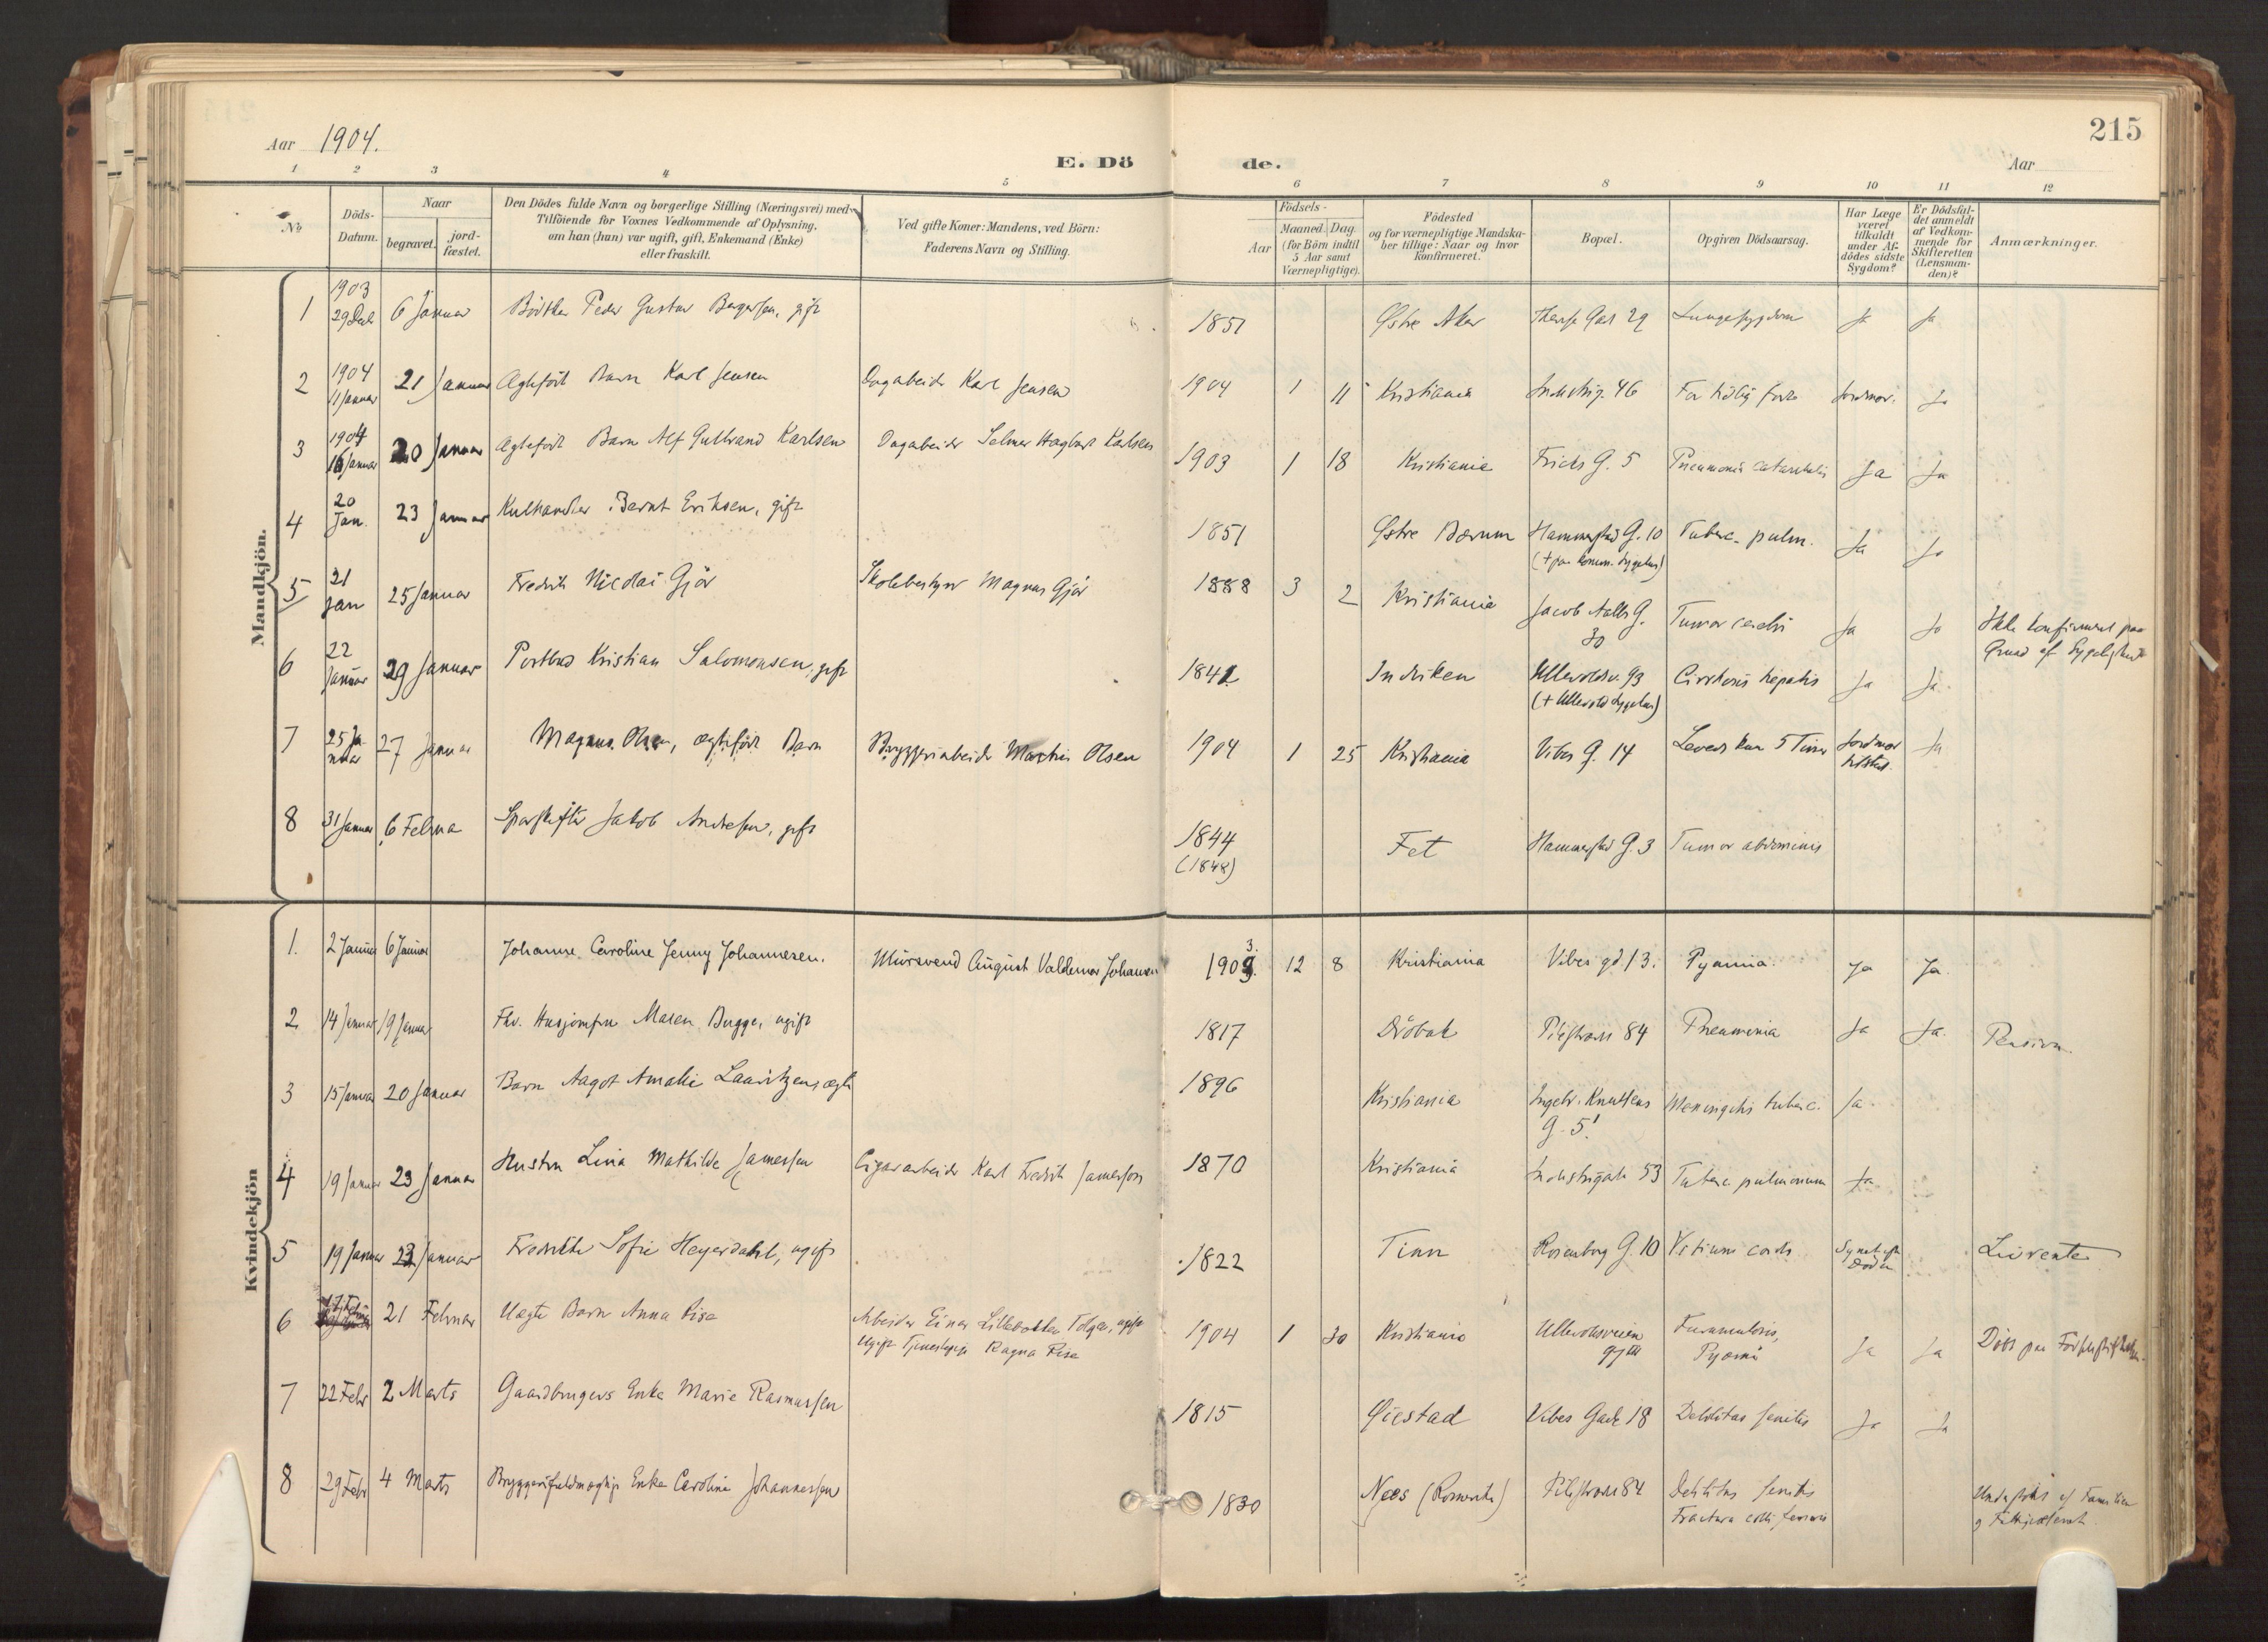 215
Aar 1904.
E. Dö de.
Aar
1 2 3 4 5 6 7 8 9 10 11 12
No
Döds-Datum.
Naar
begravet.
jord-fæstet.
Den Dödes fulde Navn og borgerlige Stilling (Næringsvei) med
Tilföiende for Voxnes Vedkommende af Oplysning,
om han (hun) var ugift, gift, Enkemand (Enke)
eller fraskilt.
Ved gifte Koner: Mandens, ved Börn:
Faderens Navn og Stilling.
Födsels-
Aar
Maaned. Dag.
(for Börn indtil
5 Aar samt
Værnepligtige).
Födested
og for værnepligtige Mandska-
ber tillige: Naar og hvor
konfirmeret.
Bopæl.
Opgiven Dödsaarsag.
Har Læge
været
tilkaldt
under Af-
dödes sidste
Sygdom?
Er Dödsfal-
det anmeldt
af Vedkom-
mende for
Skifteretten
(Lensman-
den)?
Anmærkninger.
Mandkjön.
1 1903 29 Decb 6 Januar Bödker Peder Gustav gift 1851 Østre Aker 29 Lungesygdom Ja Ja
2 1904 11 Januar 21 Januar Ægtefödt Barn Karl Jensen Dagarbeider Karl Jensen 1904 1 11 Kristiania Industrig. 46 For tidlig Jordmor. Ja
3 1904 16 Januar 20 Januar Ægtefödt Barn Alf Gulbrand Karlsen Dagarbeider Selmer Hagbart Karlsen 1903 1 18 Kristiania Fricks G. 5 Pneumonia catarrhalis Ja Ja
4 20 Jan. 23 Januar Kulhandler Bernt Eriksen, gift 1851 Østre Bærum Hammerstad G. 10 Tuberc. pulm. Ja Ja
(+ paa komm. Sygehus)
5 21 Jan 25 Januar Fredrik Nicolai Gjör Skolebestyrer Magnus Gjör 1888 3 2 Kristiania Jacob Aalls G. 30 Tumor cerebri Ja Ja Ikke konfirmeret paa
Grund af Sygelighed
6 22 Januar 29 Januar Postbud Kristian Salomonsen, gift 1841 Indviken Ullevoldsv. 93 Cirrhosis hepatis Ja Ja
(+ Ullevold Sygehus)
7 25 Januar 27 Januar Magnus Olsen, ægtefödt Barn Bryggeriarbeider Martin Olsen 1904 1 25 Kristiania Vibes G. 14 Levede kun 5 Timer Jordmor tilstede. Ja
8 31 Januar 6 Februa Sporskifter Jakob Andresen, gift 1844 Fet Hammerstad G. 3 Tumor abdominis
(1848)
Kvindekjön
1. 2 Januar 6 Januar Johanne Caroline Jenny Johannesen. Mürsvend August Valdemar Johansen 1903. 12 8 Kristiania Vibes gd 13. Pyæmia. Ja Ja
2 14 Januar 19 Januar Fhv. Husjomfru Maren Bugge, ugift 1817 Dröbak Pilestræde 84 Pneumonia Ja Ja. Pension.
3 15 Januar 20 Januar Barn Aagot Amalie Lauritzen, ægte 1896 Kristiania Ingebr. Knutsens G. 5. Meningitis tuberc. Ja
4 19 Januar 23 Januar Hustru Lina Mathilde Jamessen Cigararbeider Karl Fredrik Jamessen 1870 Kristiania Industrigade 53 Tuberc. pulmonum Ja
5 19 Januar 23 Januar Fredrikke Sofie Heyerdahl, ugift 1822 Tinn Rosenborg G. 10 Vitium cordis Synet eft Döden Livrente
6 17 Febr 21 Februar Uægte Barn Anna Risa Arbeider Einar Tolga, ugift
Ugift Tjenestepige Ragna Risa 1904 1 30 Kristiania Ullevoldsveien Furunculosis,
Pyæmi Ja Ja Död paa
7 22 Febr 2 Marts Gaardbrugers Enke Marie Rasmussen 1815 Öiestad Vibes Gade 18 Debilitas senilis Ja Ja
8 29 Febr 4 Marts Enke Caroline Johannessen 1830 Næs (Romerike) Pilestræde 84 Debilitas senilis
Fractura colli femoris Understöttet af Familien